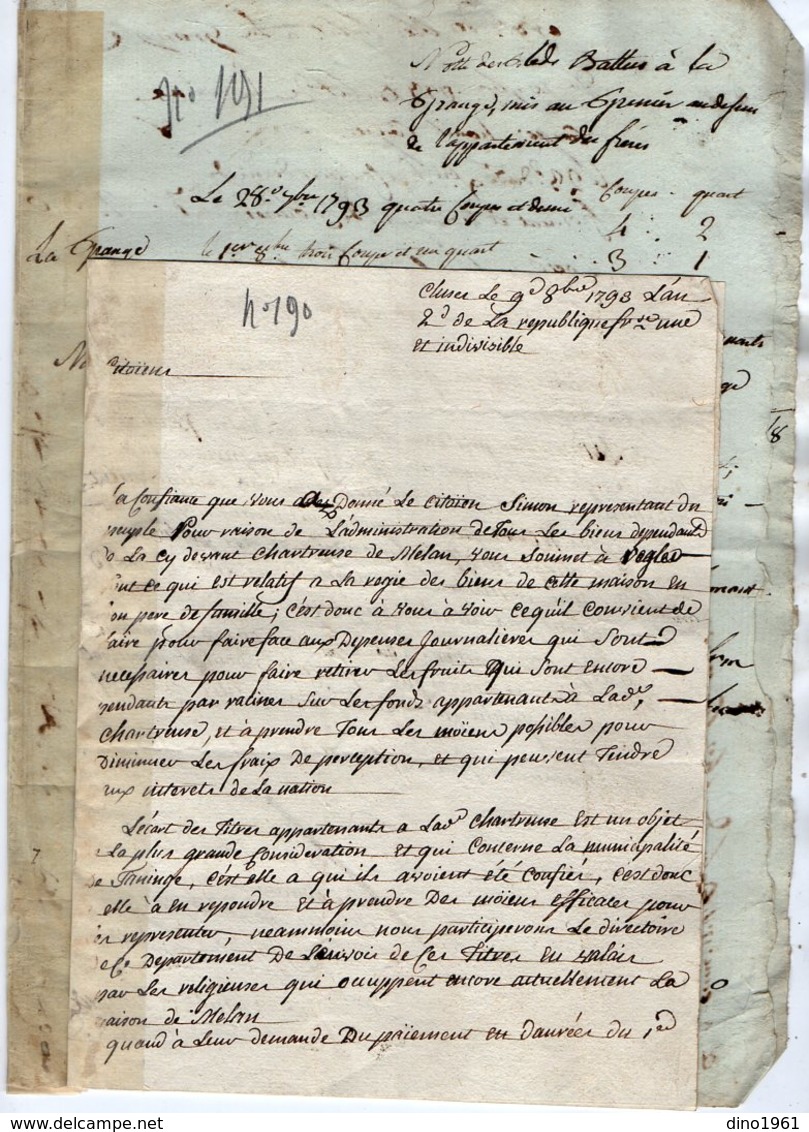 No 191
Notte des bleds Battus à la
Grange, mis au Grenier au dessus
de l'appartement des frères
Coupes . quart
Le 28e 7bre 1793 quatre Coupes et demi
4 : 2
La Grange le 1er 8bre trois Coupe et un quart
3 : 1
no 190
Cluses Le 9e 8bre 1793 L'an
2d de La republique frse une
et indivisible
Citoïens
La Confiance que vous a Donné Le Citoïen Simon representant du
peuple Pour raison de L'administration de Tous Les biens dependants
de La cy devant Chartreuse de Melan, vous soumet à regler
tout ce qui est relatif a La regie des biens de cette maison en
bon pere de famille; c'est donc à vous à voir ce qu'il convient de
faire pour faire face aux Depenses Journalieres qui sont
necessaires pour faire retirer Les fruits qui sont encore
pendants par racines sur Les fonds appartenants à Lade
Chartreuse, et à prendre Tous Les moïens possibles pour
Diminuer Les fraix De perception, et qui peuvent Tendre
aux interets de La nation
L'écart des Titres appartenants a Lade Chartreuse est un objet
de La plus grande Consideration et qui Concerne La municipalité
de Taninge, c'est elle a qui ils avoient été confiés, c'est donc
elle à en repondre et à prendre Des moïens efficaces pour
les representer, neammoins nous participerons Le directoire
de Ce Departement De L'envoi de Ces Titres en valais
par Les religieuses qui occuppent encore actuellement La
maison de Melan
quand à Leur demande Du païement en danrées du 1er
dino1961